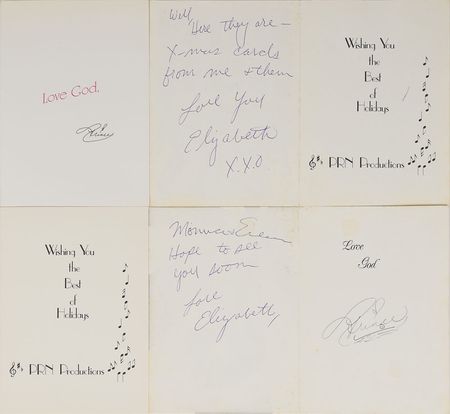 Love God,
Prince
Well,
Here they are –
X-mas cards
from me & them
Love You
Elizabeth
X.X.O.
Wishing You
the
Best
of
Holidays
PRN Productions
Wishing You
the
Best
of
Holidays
PRN Productions
Hope to see
you soon
Love
Elizabeth,
Love
God
Prince